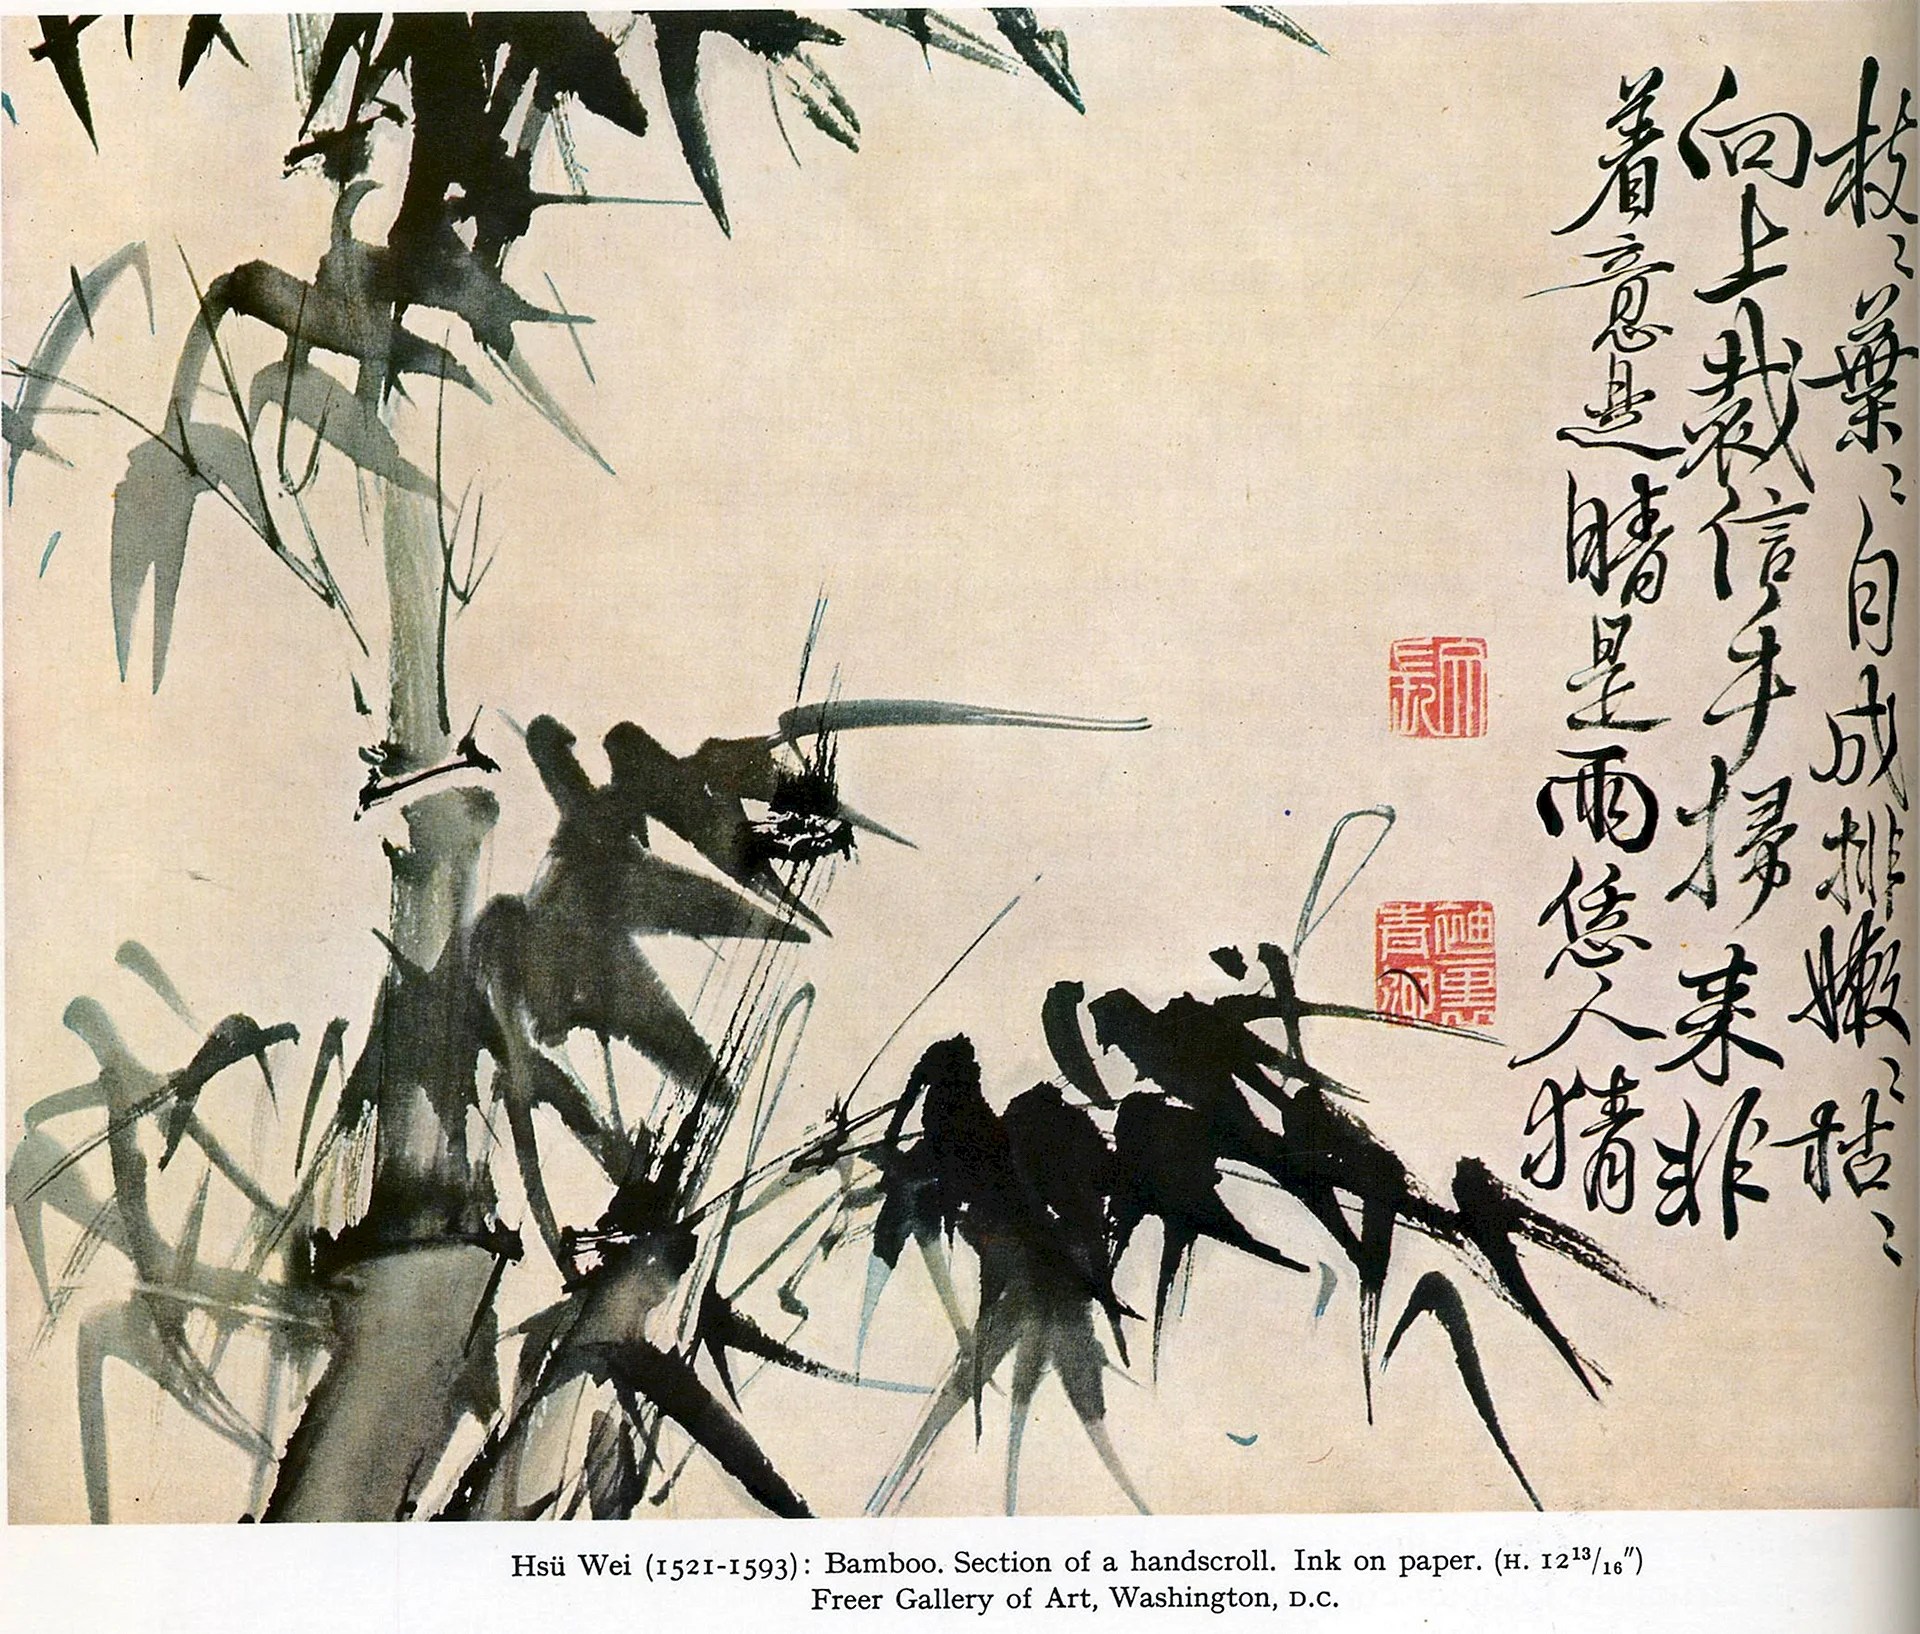 枝〻葉〻自成排嫩〻枯〻
向上裁信手掃來非
着意是晴是雨恁人猜
Hsü Wei (1521-1593): Bamboo. Section of a handscroll. Ink on paper. (H. 12 13/16")
Freer Gallery of Art, Washington, D.C.